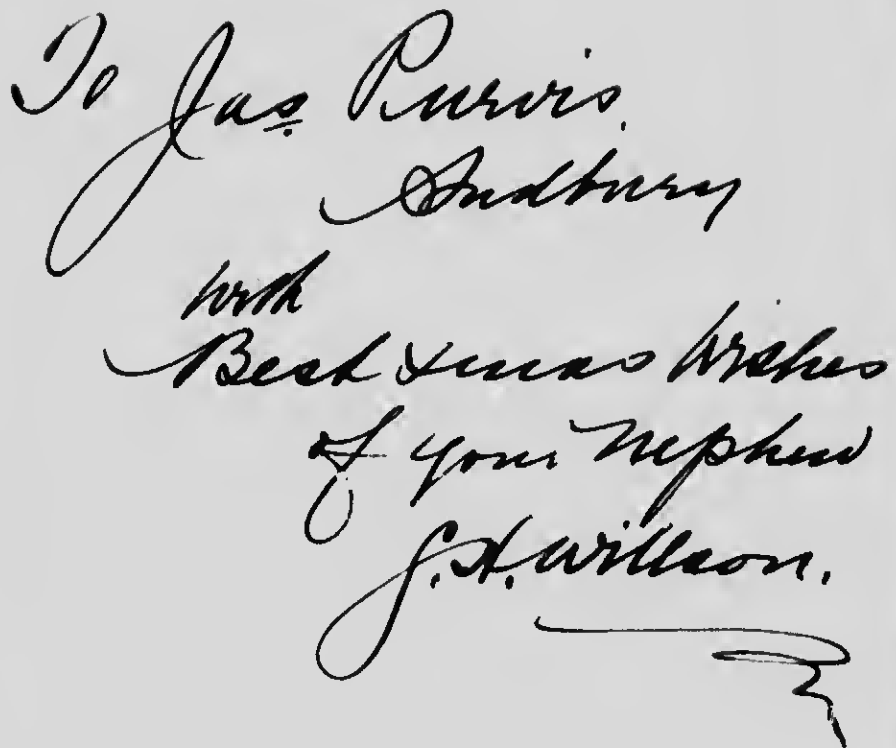 To Jas. Purvis.
Sudbury
with
Best Xmas Wishes
of your Nephew
J.H. Willson.